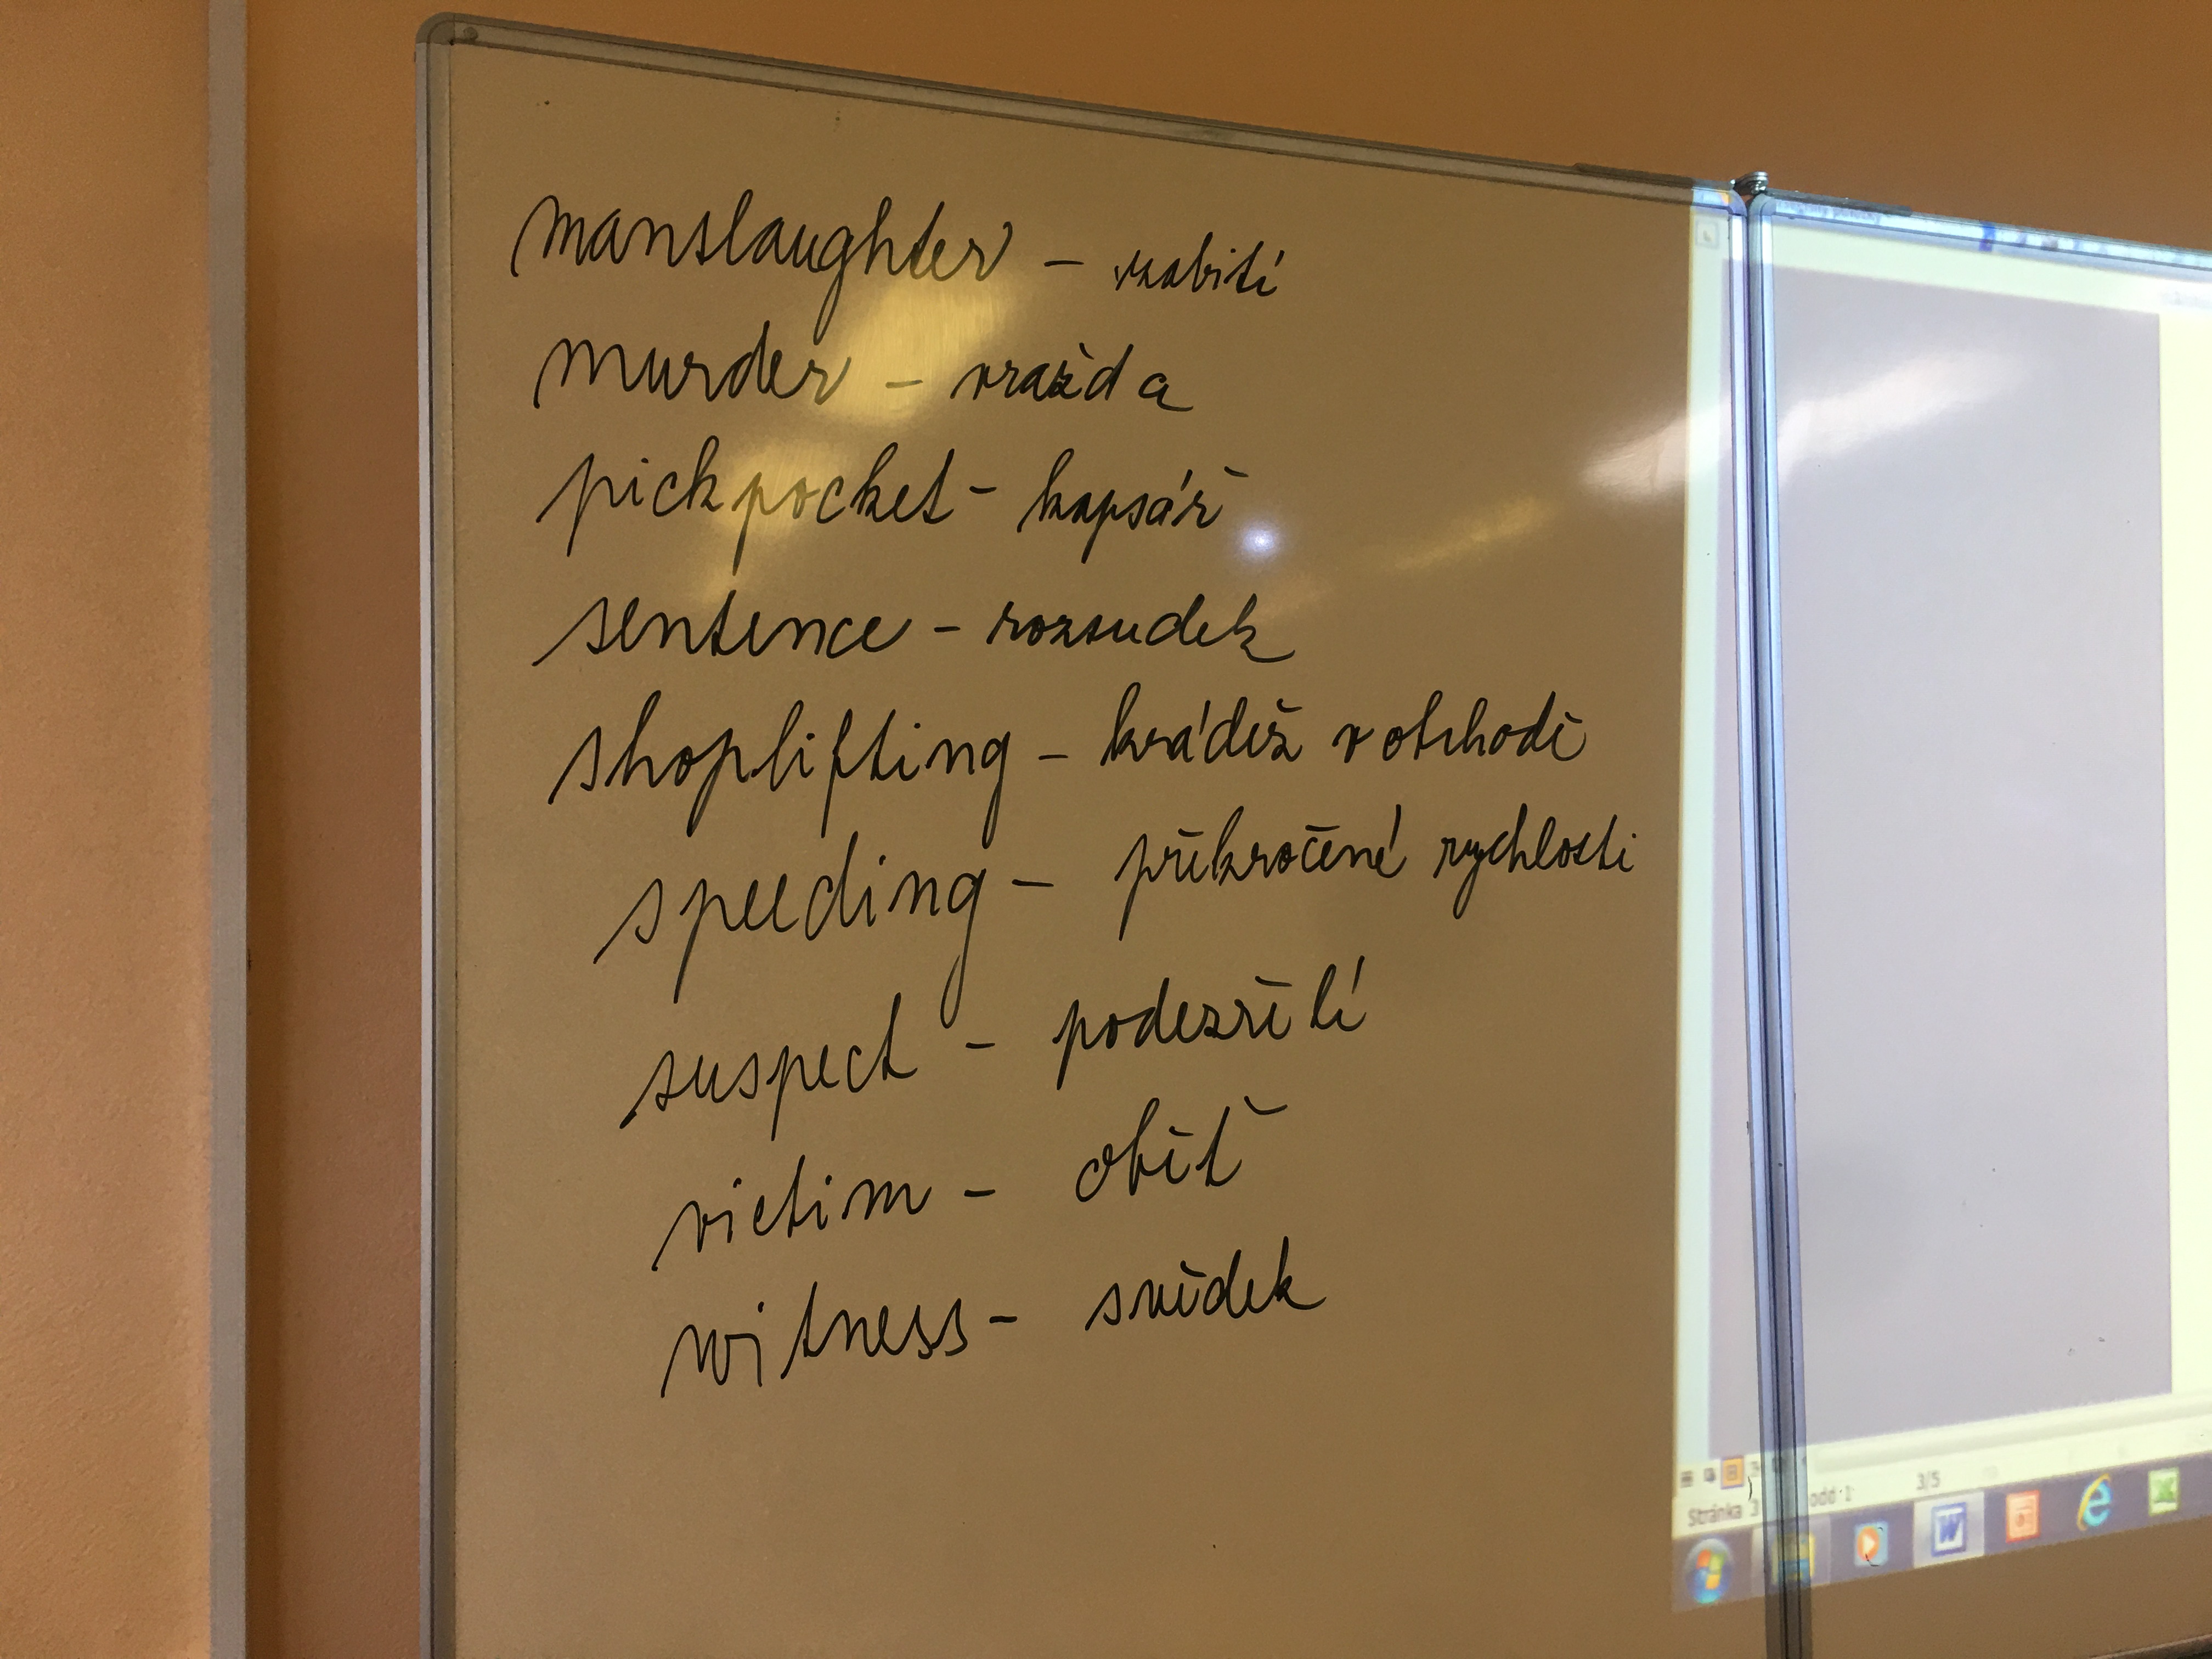 manslaughter - zabití
murder - vražda
pickpocket - kapsář
sentence - rozsudek
shoplifting - krádež v obchodě
speeding - překročené rychlosti
suspect - podezřelí
victim - oběť
witness - svědek
3/5
Stránka 3
odd 1